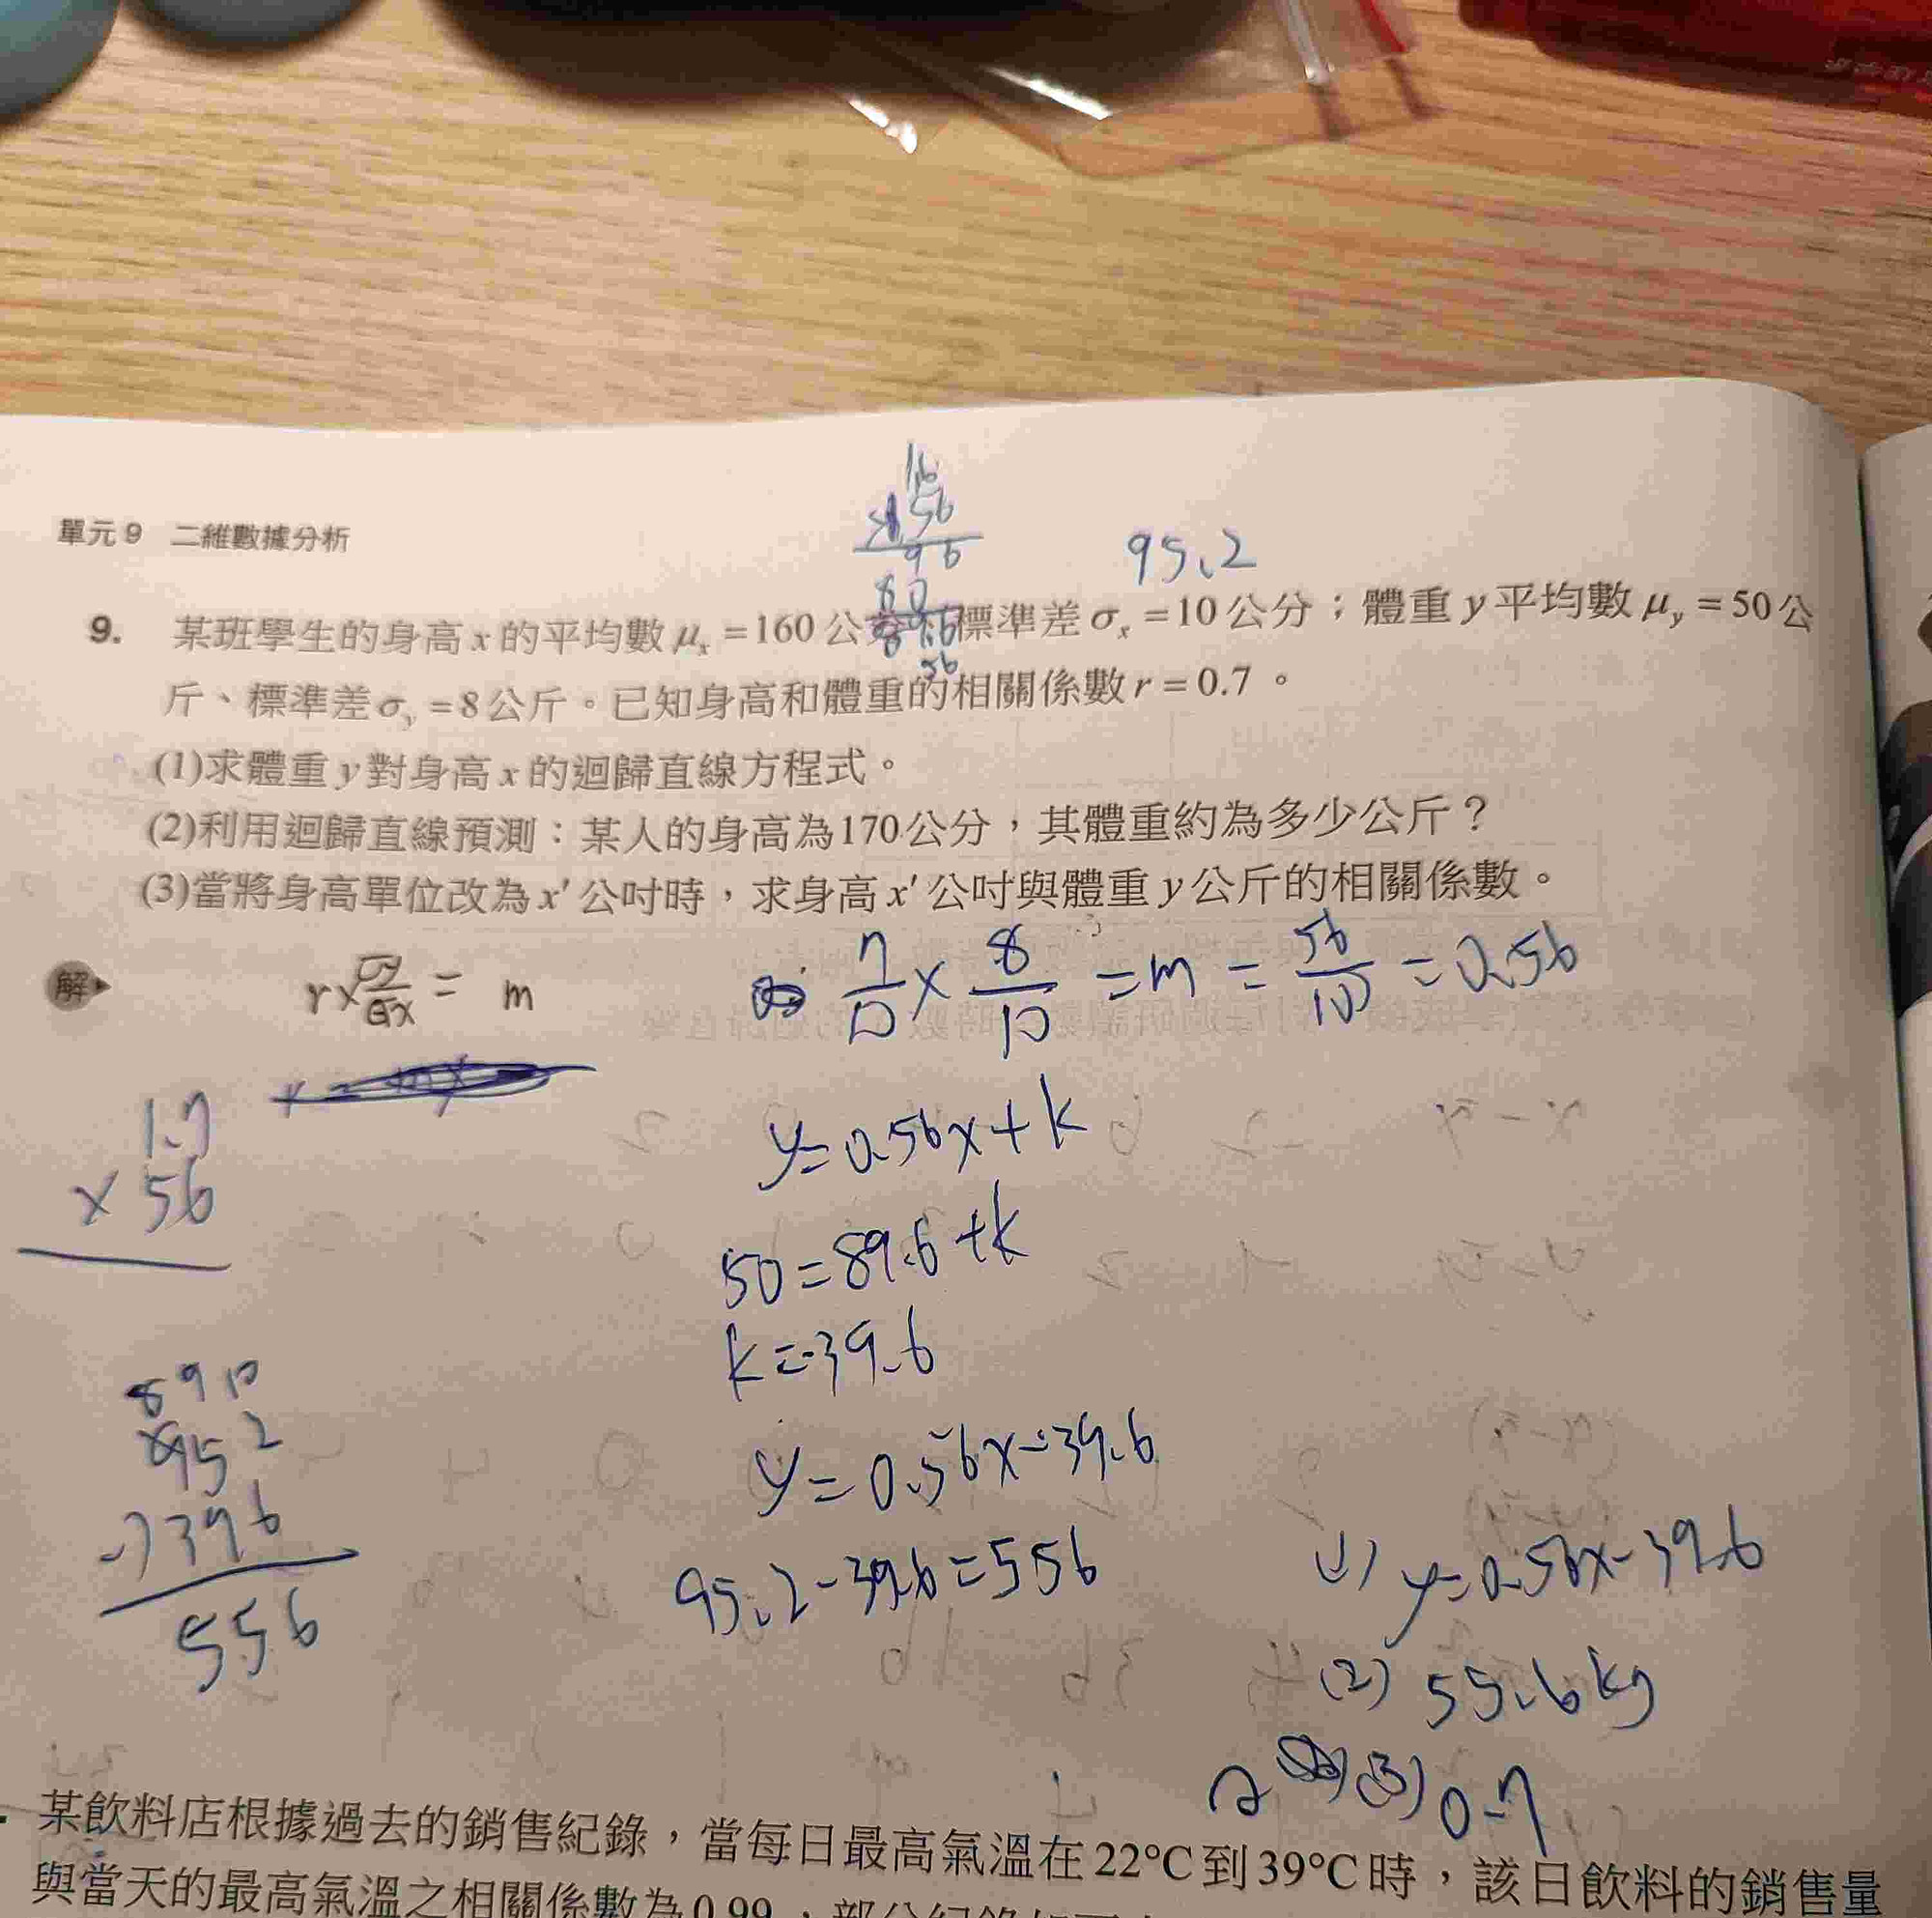 單元9 二維數據分析
16
56
96
80
95.2
9. 某班學生的身高x的平均數μx=160公 標準差σx=10公分；體重y平均數μy=50公
斤、標準差σy=8公斤。已知身高和體重的相關係數r=0.7。
(1)求體重y對身高x的迴歸直線方程式。
(2)利用迴歸直線預測：某人的身高為170公分，其體重約為多少公斤？
(3)當將身高單位改為x′公吋時，求身高x′公吋與體重y公斤的相關係數。
解
r×σy/σx = m
7/10 × 8/10 = m = 56/100 = 0.56
1.7
× 56
y=0.56x+k
50=89.6+k
k=-39.6
8 9 10
952
-)396
556
y=0.56x-39.6
95.2-39.6=556
(1) y=0.56x-39.6
(2) 55.6kg
(3) 0.7
某飲料店根據過去的銷售紀錄，當每日最高氣溫在22°C到39°C時，該日飲料的銷售量
與當天的最高氣溫之相關係數為0.99，部分紀錄如下